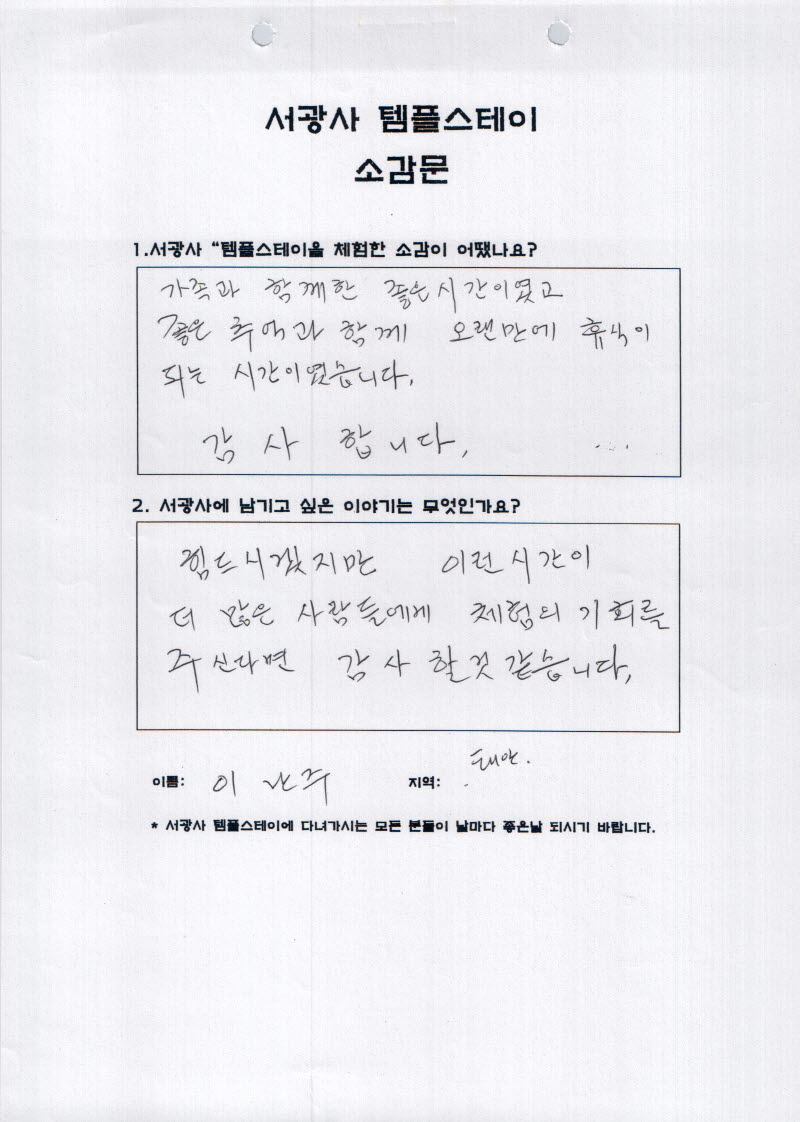 서광사 템플스테이
소감문
1.서광사 “템플스테이을 체험한 소감이 어땠나요?
가족과 함께한 좋은시간이였고
좋은 추억과 함께 오랜만에 휴식이
되는 시간이였습니다.
감사 합니다, ...
2. 서광사에 남기고 싶은 이야기는 무엇인가요?
힘드시겠지만 이런시간이
더 많은 사람들에게 체험의 기회를
주신다면 감사 할것 같습니다,
이름: 이난주 지역: 태안.
* 서광사 템플스테이에 다녀가시는 모든 분들이 날마다 좋은날 되시기 바랍니다.